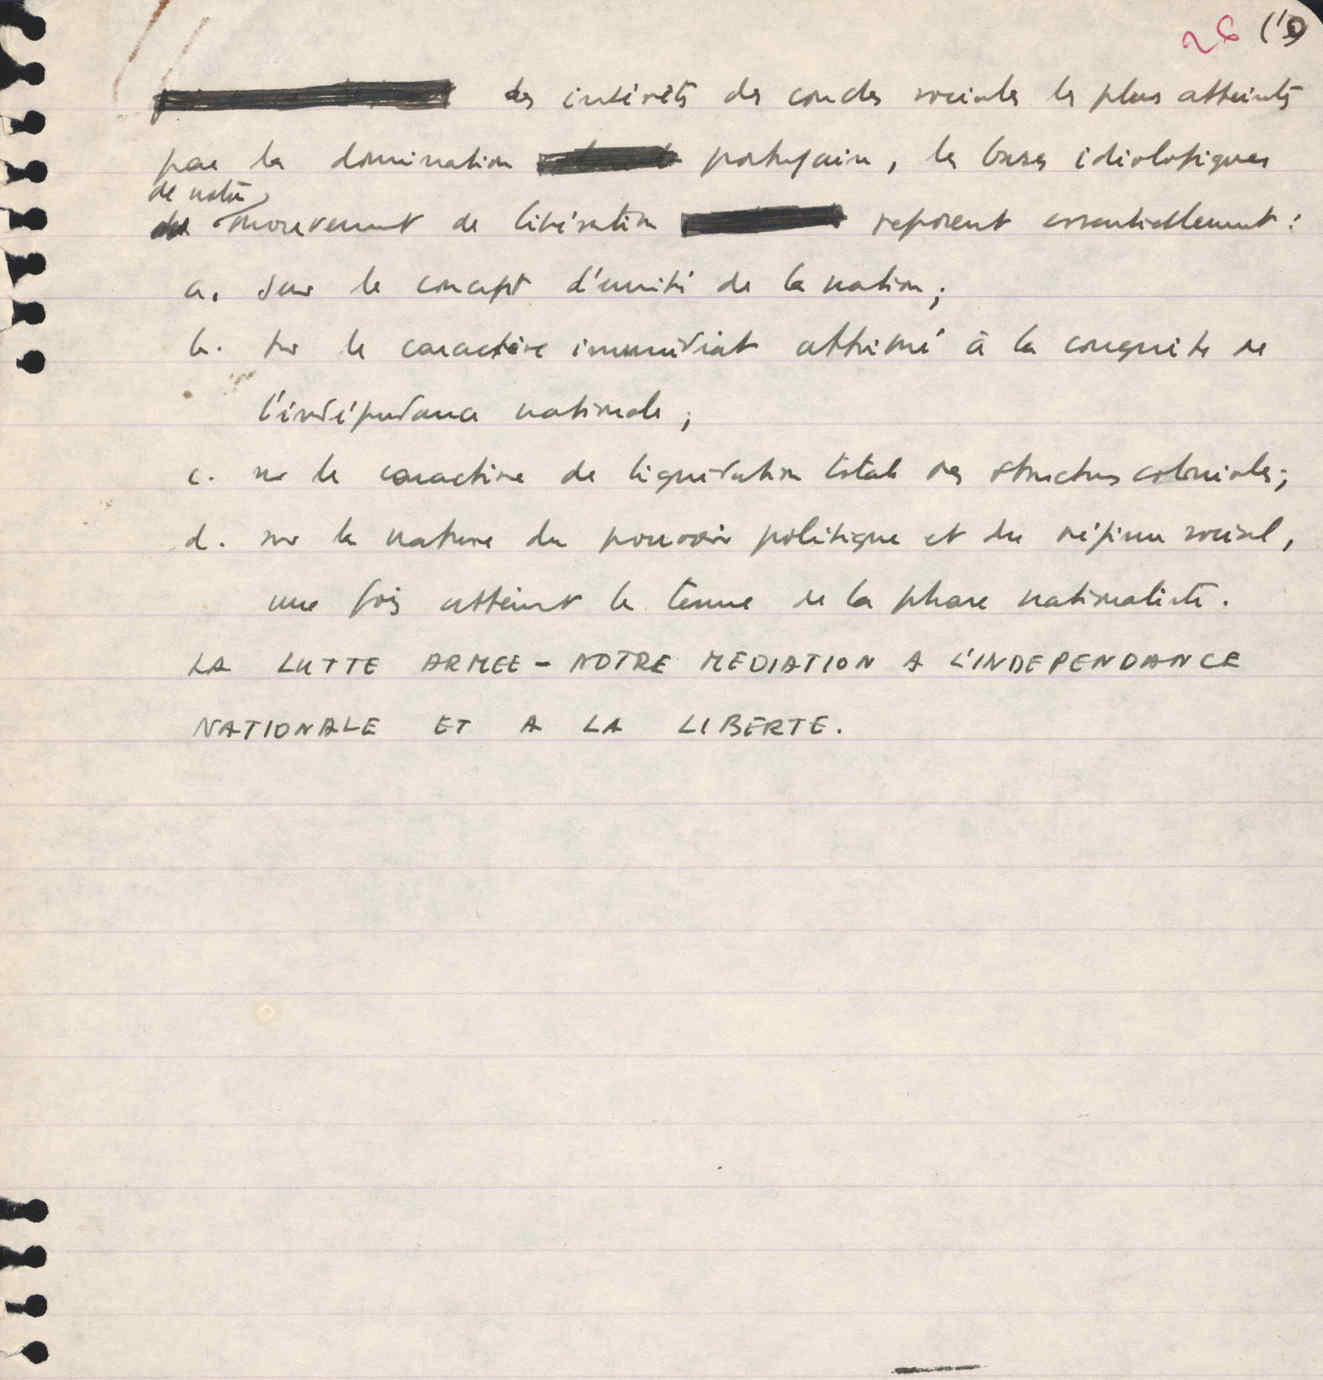 26 (19)
les intérêts des couches sociales les plus atteints
par la domination portugaise, les bases idéologiques
de notre
mouvement de libération reposent essentiellement :
a. sur le concept d'unité de la nation ;
b. sur le caractère immédiat attribué à la conquête de
l'indépendance nationale ;
c. sur le caractère de liquidation totale des structures coloniales ;
d. sur la nature du pouvoir politique et du régime social,
une fois atteint le terme de la phase nationaliste.
LA LUTTE ARMEE - NOTRE MEDIATION A L'INDEPENDANCE
NATIONALE ET A LA LIBERTE.